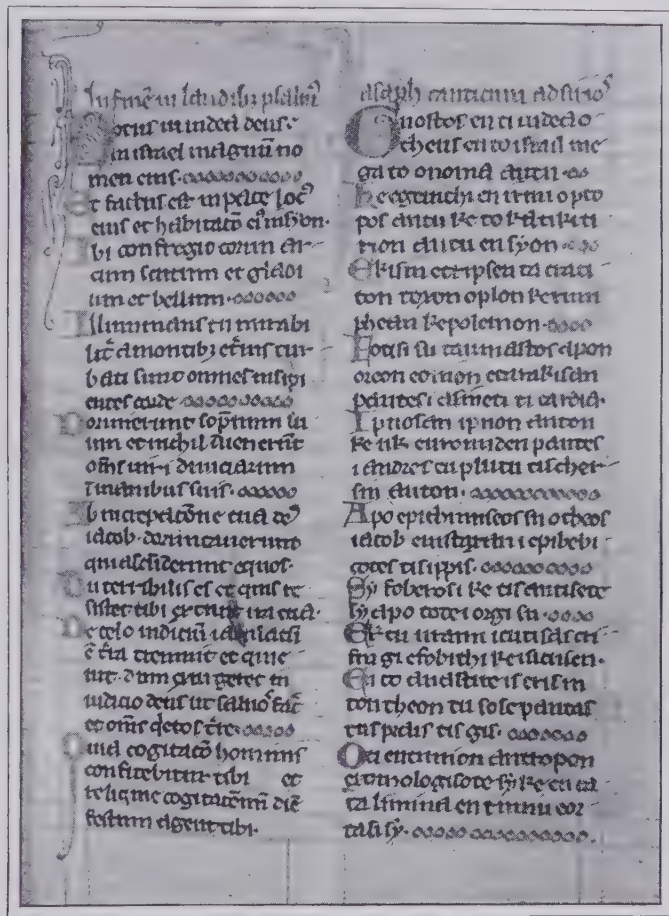 In finē in laudibꝰ psalmꝰ
Notus in iudea deus
in israel magnū no
men eius.
Et factus est in pace locꝰ
eius et habitatō eiꝰ in syon.
Ibi confregit corum ar
cum scutum et gladi
um et bellum.
Illuminans tu mirabi
lit̄ a montibꝫ et̄nis tur
bati sunt omnes insipi
entes corde
Dormierunt sopnum su
um et nichil inuenerūt
om̄s uiri diuiciarum
i manibus suis.
Ab increpatōne tua deꝰ
iacob. dormitauerunt
qui ascenderunt equos.
Tu terribilis es et quis re
sistet tibi ex tunc ira tua.
De celo iudicium
t̄ra tremuit et quie
uit. dum exurgeret in
iudicio deus ut saluoˢ fac̄
et om̄s t̄re.
Quia cogitatō hominis
confitebitur tibi et
reliquie cogitatōnū diē
festum agent tibi.
asaph canticum ad
Gnostos en ti iudea o
theus en to israil me
ga to onoma autu.
Ke egenithi en irini o to
pos autu ke to katikiti
rion autu en syon
Ekisin etripsen ta crati
ton toxon oplon ke rum
phean ke polemon.
Fotisi su taumastos apon
oreon eonion etarakisan
pantes i asineti ti cardia.
Ipnosan ipnon auton
ke uk euron uden pantes
i andres tu plutu tis cher
sin auton.
Apo epithimiseos su o theos
iacob enistaxan i epibebi
cotes tis ippis.
Sy foberos i ke tis antisete
sy apo tote i orgi su.
Ek tu uranu icutisas cri
sin gi efobithi ke isicisen.
En to anastite is crisin
ton theon tu sose pantas
tus pidis tis gis.
Oti entimion antropon
exomologisete sy ke en ca
talimma en timiu eor
tasi sy.